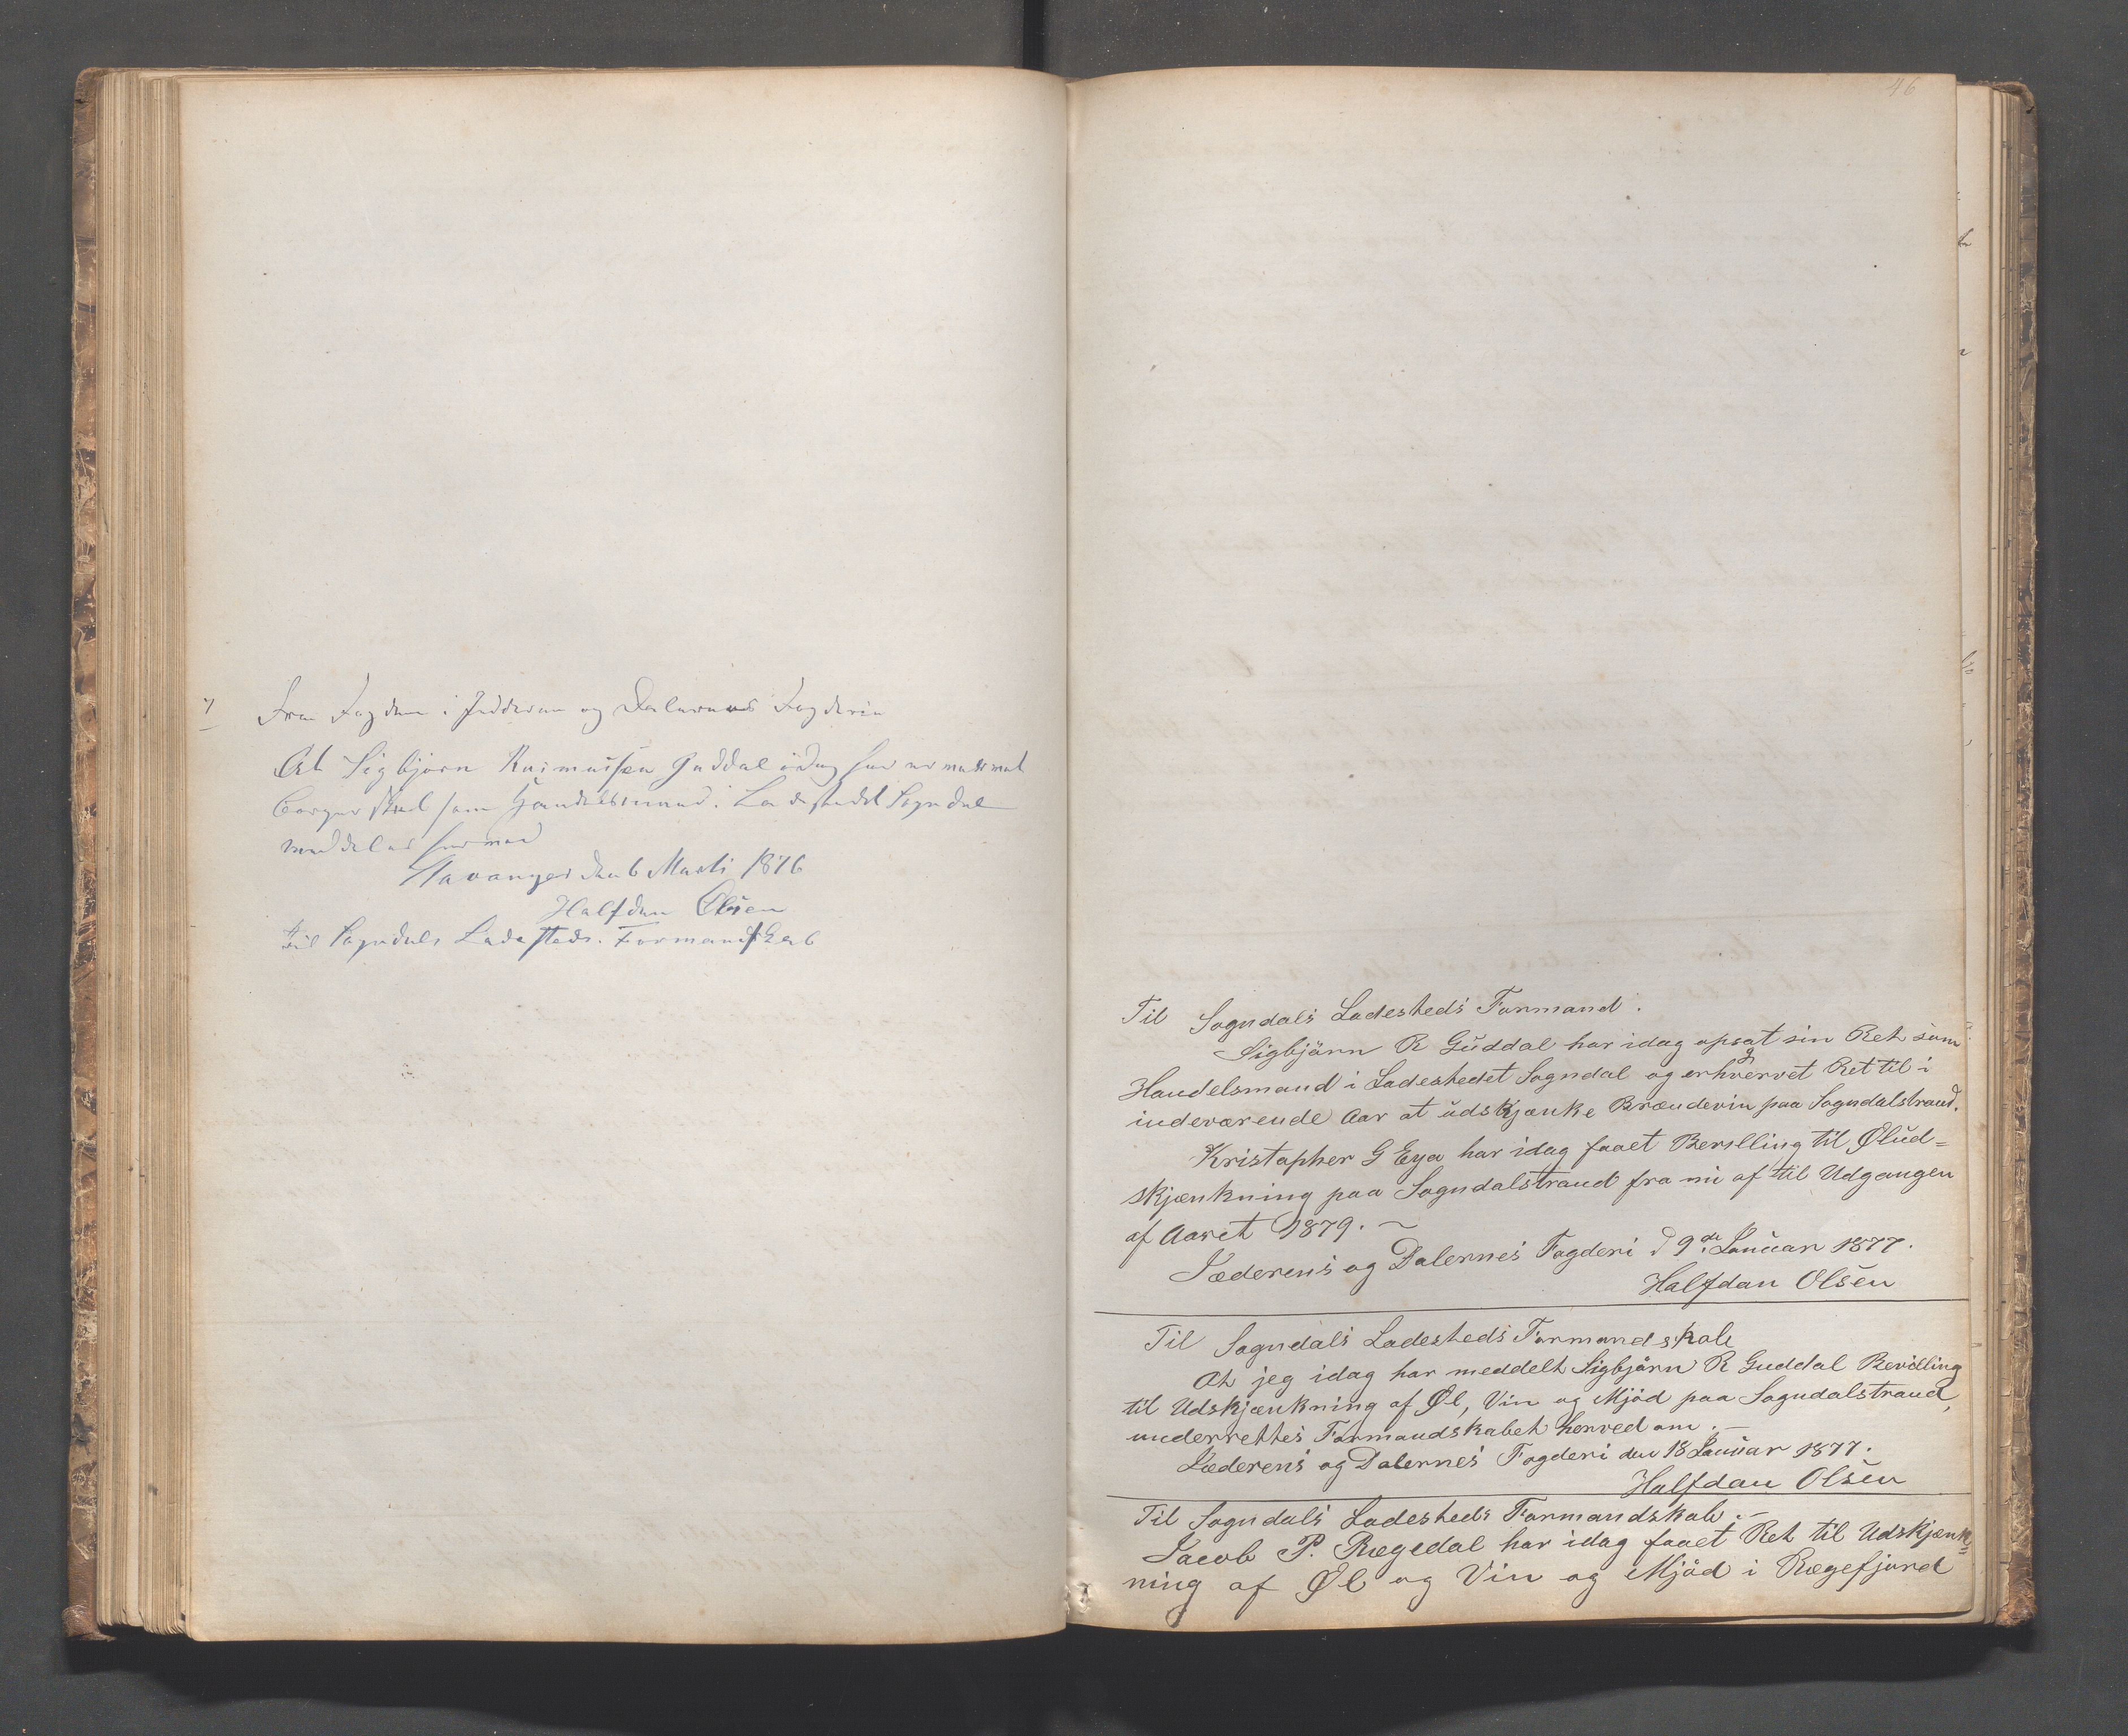 7 Fra Fogden i Jedderen og Dalernes Fogderie
At Sigbjørn Rasmussen Guddal idag har
borgerskab som Handelsmand i Ladestedet Sogndal
meddeles herved
Stavanger den 6 Marts 1876
Halfdan Olsen
Til Sogndals Ladesteds Formandskab
46
Til Sogndals Ladesteds Formand.
Sigbjörn R Guddal har idag opsat sin Ret som
Handelsmand i Ladestedet Sogndal og erhvervet Ret til i
indeværende Aar at udskjænke Brændeviin paa Sogndalstrand.
Kristopher G Eya har idag faaet Bevilling til Ølud=
skjænkning paa Sogndalstrand fra nu af til Udgangen
af Aaret 1879. ~
Jæderens og Dalernes Fogderi d 9de Januar 1877.
Halfdan Olsen
Til Sogndals Ladesteds Formandskab
At jeg idag har meddelt Sigbjörn R Guddal Bevilling
til Udskjænkning af Øl, Vin og Mjöd paa Sogndalstrand,
underrettes Formandskabet herved om. —
Jæderens og Dalernes Fogderi den 18 Januar 1877.
Halfdan Olsen
Til Sogndals Ladesteds Formandskab. —
Jacob P. Rægedal har idag faaet Ret til Udskjænk=
ning af Øl og Vin og Mjöd i Rægefjord